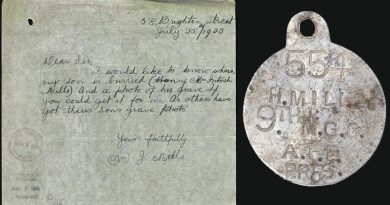 Brighton Street
July 25th 1923
Dear Sir,
I would like to know where
my son is buried (Henry Mc Intosh
Mills) And a photo of his grave if
you could get it for me As others have
got theirs sons grave photo
Yours faithfully
J. Mills
554
H. MILL
9TH M.G.
A.I.F
PRES